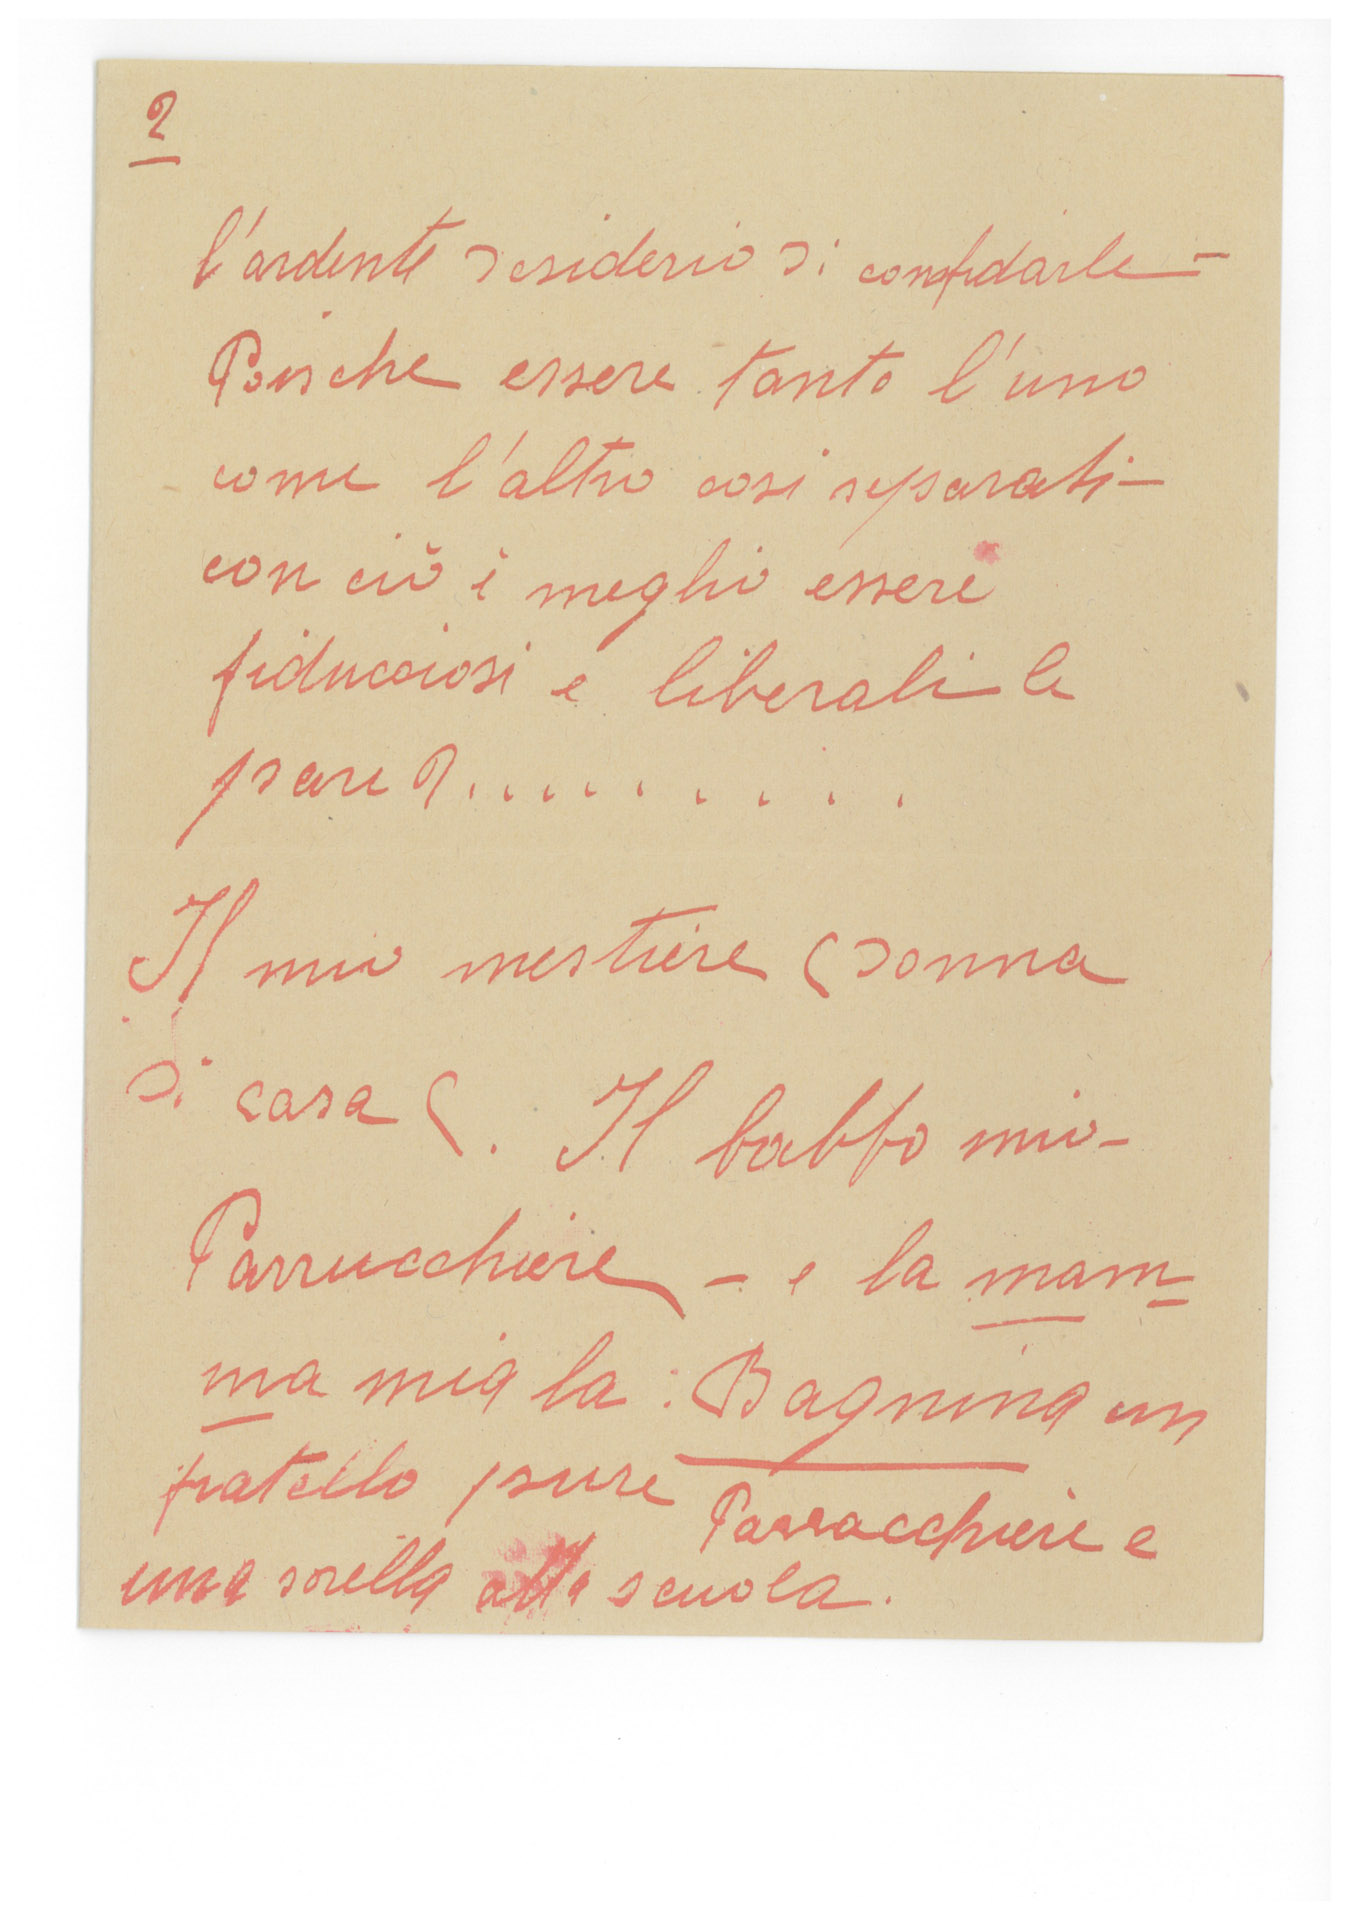 2
l'ardente desiderio di confidarle –
Poische essere tanto l'uno
come l'altro cosi separati –
con ciò è meglio essere
fiducciosi e liberali le
pare?..........
Il mio mestiere (donna
di casa (. Il babbo mio –
Parrucchiere – e la mam
ma mia la : Bagnina un
fratello pure Parracchiere e
una sorella alla scuola.